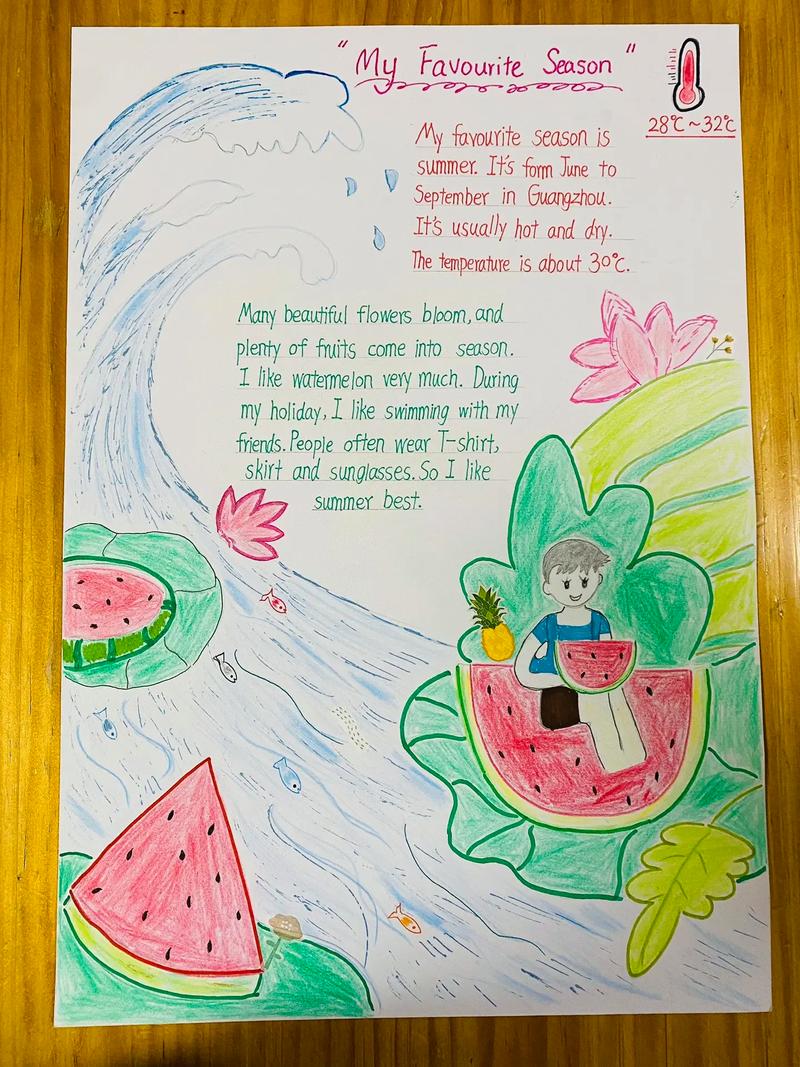 "My Favourite Season"
28℃~32℃
My favourite season is
summer. It's form June to
September in Guangzhou.
It's usually hot and dry.
The temperature is about 30℃.
Many beautiful flowers bloom, and
plenty of fruits come into season.
I like watermelon very much. During
my holiday, I like swimming with my
friends. People often wear T-shirt,
skirt and sunglasses. So I like
summer best.